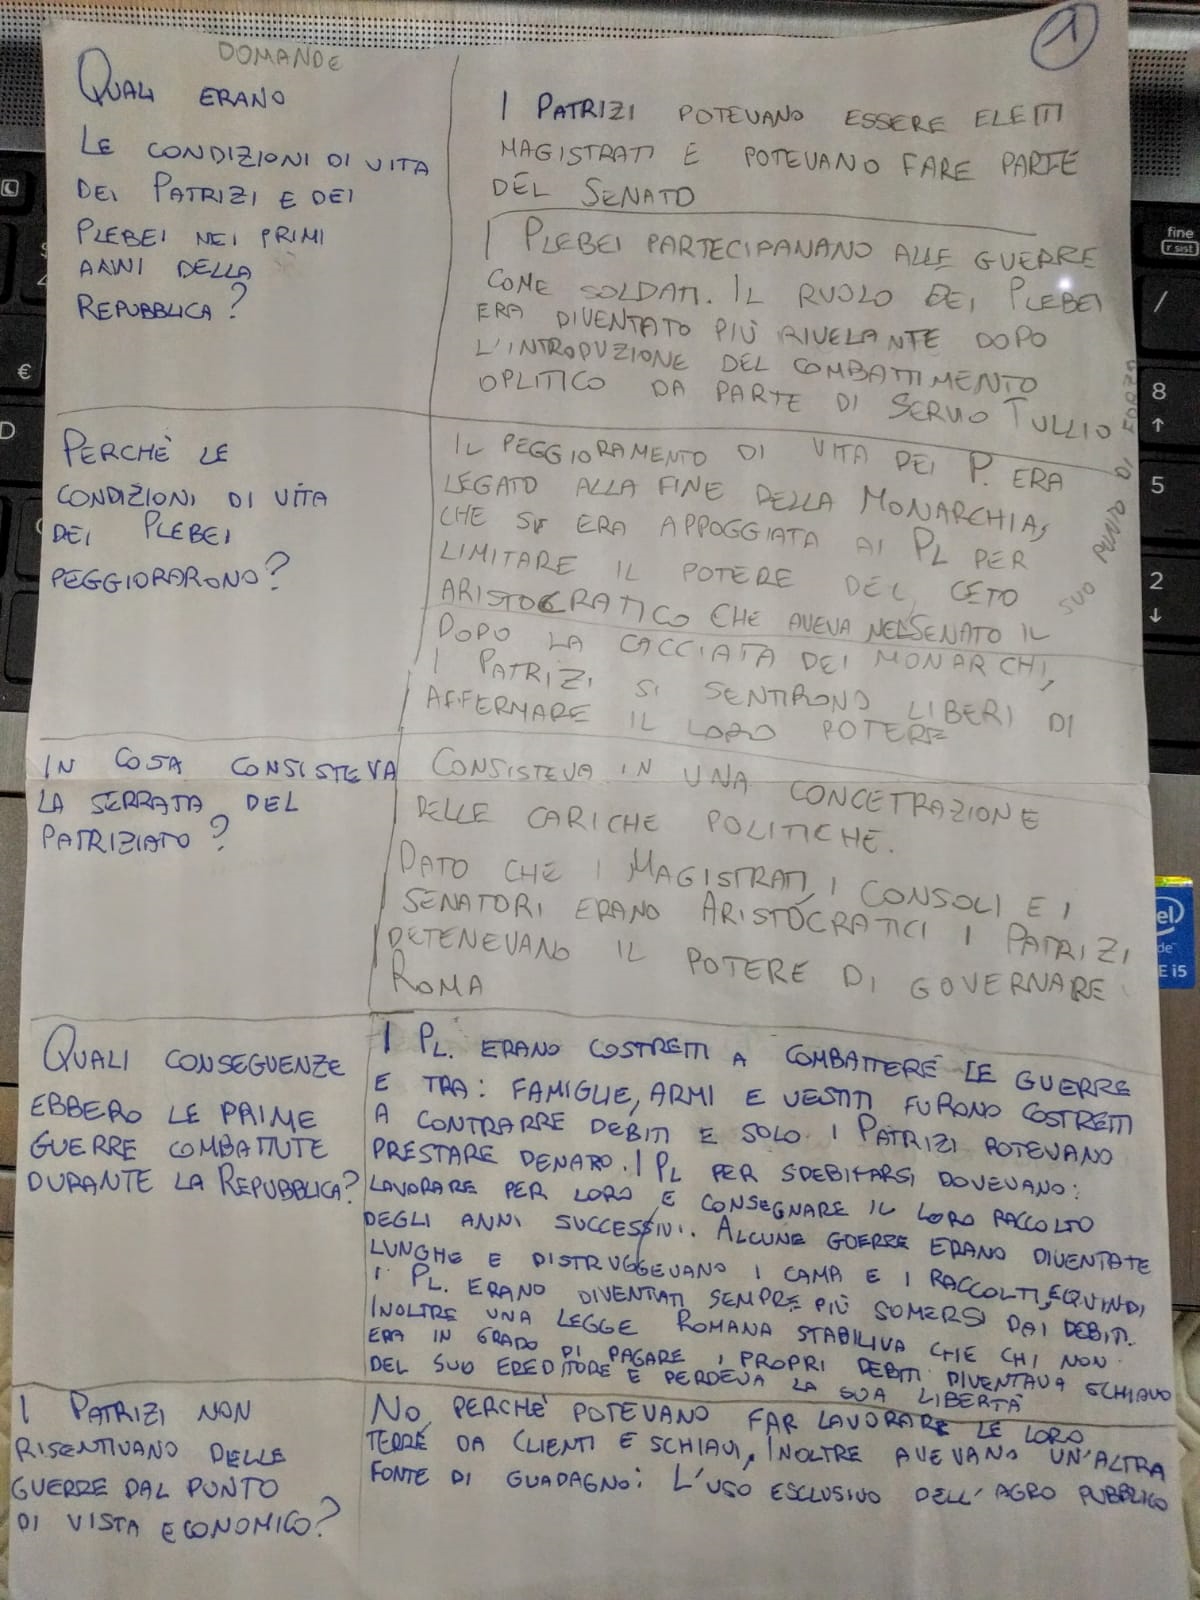 1
DOMANDE
QUALI ERANO
LE CONDIZIONI DI VITA
DEI PATRIZI E DEI
PLEBEI NEI PRIMI
ANNI DELLA
REPUBBLICA?
I PATRIZI POTEVANO ESSERE ELETTI
MAGISTRATI E POTEVANO FARE PARTE
DEL SENATO
I PLEBEI PARTECIPANANO ALLE GUERRE
COME SOLDATI. IL RUOLO DEI PLEBEI
ERA DIVENTATO PIÙ RIVELANTE DOPO
L'INTRODUZIONE DEL COMBATTIMENTO
OPLITICO DA PARTE DI SERVIO TULLIO
PERCHÈ LE
CONDIZIONI DI VITA
DEI PLEBEI
PEGGIORARONO?
IL PEGGIORAMENTO DI VITA DEI P. ERA
LEGATO ALLA FINE DELLA MONARCHIA,
CHE SI ERA APPOGGIATA AI PL PER
LIMITARE IL POTERE DEL CETO
ARISTOCRATICO CHE AVEVA NEL SENATO IL
SUO PUNTO DI FORZA
DOPO LA CACCIATA DEI MONARCHI,
I PATRIZI SI SENTIRONO LIBERI DI
AFFERMARE IL LORO POTERE
IN COSA CONSISTEVA
LA SERRATA DEL
PATRIZIATO?
CONSISTEVA IN UNA CONCETRAZIONE
DELLE CARICHE POLITICHE.
DATO CHE I MAGISTRATI, I CONSOLI E I
SENATORI ERANO ARISTOCRATICI I PATRIZI
DETENEVANO IL POTERE DI GOVERNARE
ROMA
QUALI CONSEGUENZE
EBBERO LE PRIME
GUERRE COMBATTUTE
DURANTE LA REPUBBLICA?
I PL. ERANO COSTRETTI A COMBATTERE LE GUERRE
E TRA: FAMIGLIE, ARMI E VESTITI FURONO COSTRETTI
A CONTRARRE DEBITI E SOLO I PATRIZI POTEVANO
PRESTARE DENARO. I PL PER SDEBITARSI DOVEVANO:
LAVORARE PER LORO E CONSEGNARE IL LORO RACCOLTO
DEGLI ANNI SUCCESSIVI. ALCUNE GUERRE ERANO DIVENTATE
LUNGHE E DISTRUGGEVANO I CAMPI E I RACCOLTI, E QUINDI,
I PL. ERANO DIVENTATI SEMPRE PIÙ SOMERSI DAI DEBITI.
INOLTRE UNA LEGGE ROMANA STABILIVA CHE CHI NON
ERA IN GRADO DI PAGARE I PROPRI DEBITI DIVENTAVA SCHIAVO
DEL SUO EREDITORE E PERDEVA LA SUA LIBERTÀ
I PATRIZI NON
RISENTIVANO DELLE
GUERRE DAL PUNTO
DI VISTA ECONOMICO?
NO, PERCHÈ POTEVANO FAR LAVORARE LE LORO
TERRE DA CLIENTI E SCHIAVI, INOLTRE AVEVANO UN'ALTRA
FONTE DI GUADAGNO: L'USO ESCLUSIVO DELL'AGRO PUBBLICO
fine
/
8
↑
5
2
↓
€
D
E i5